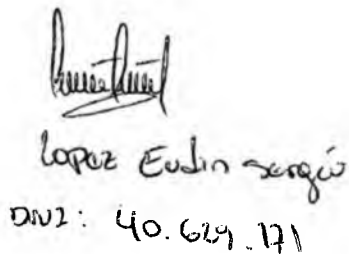 Lopez Eudin Sergio
DNI: 40.629.171